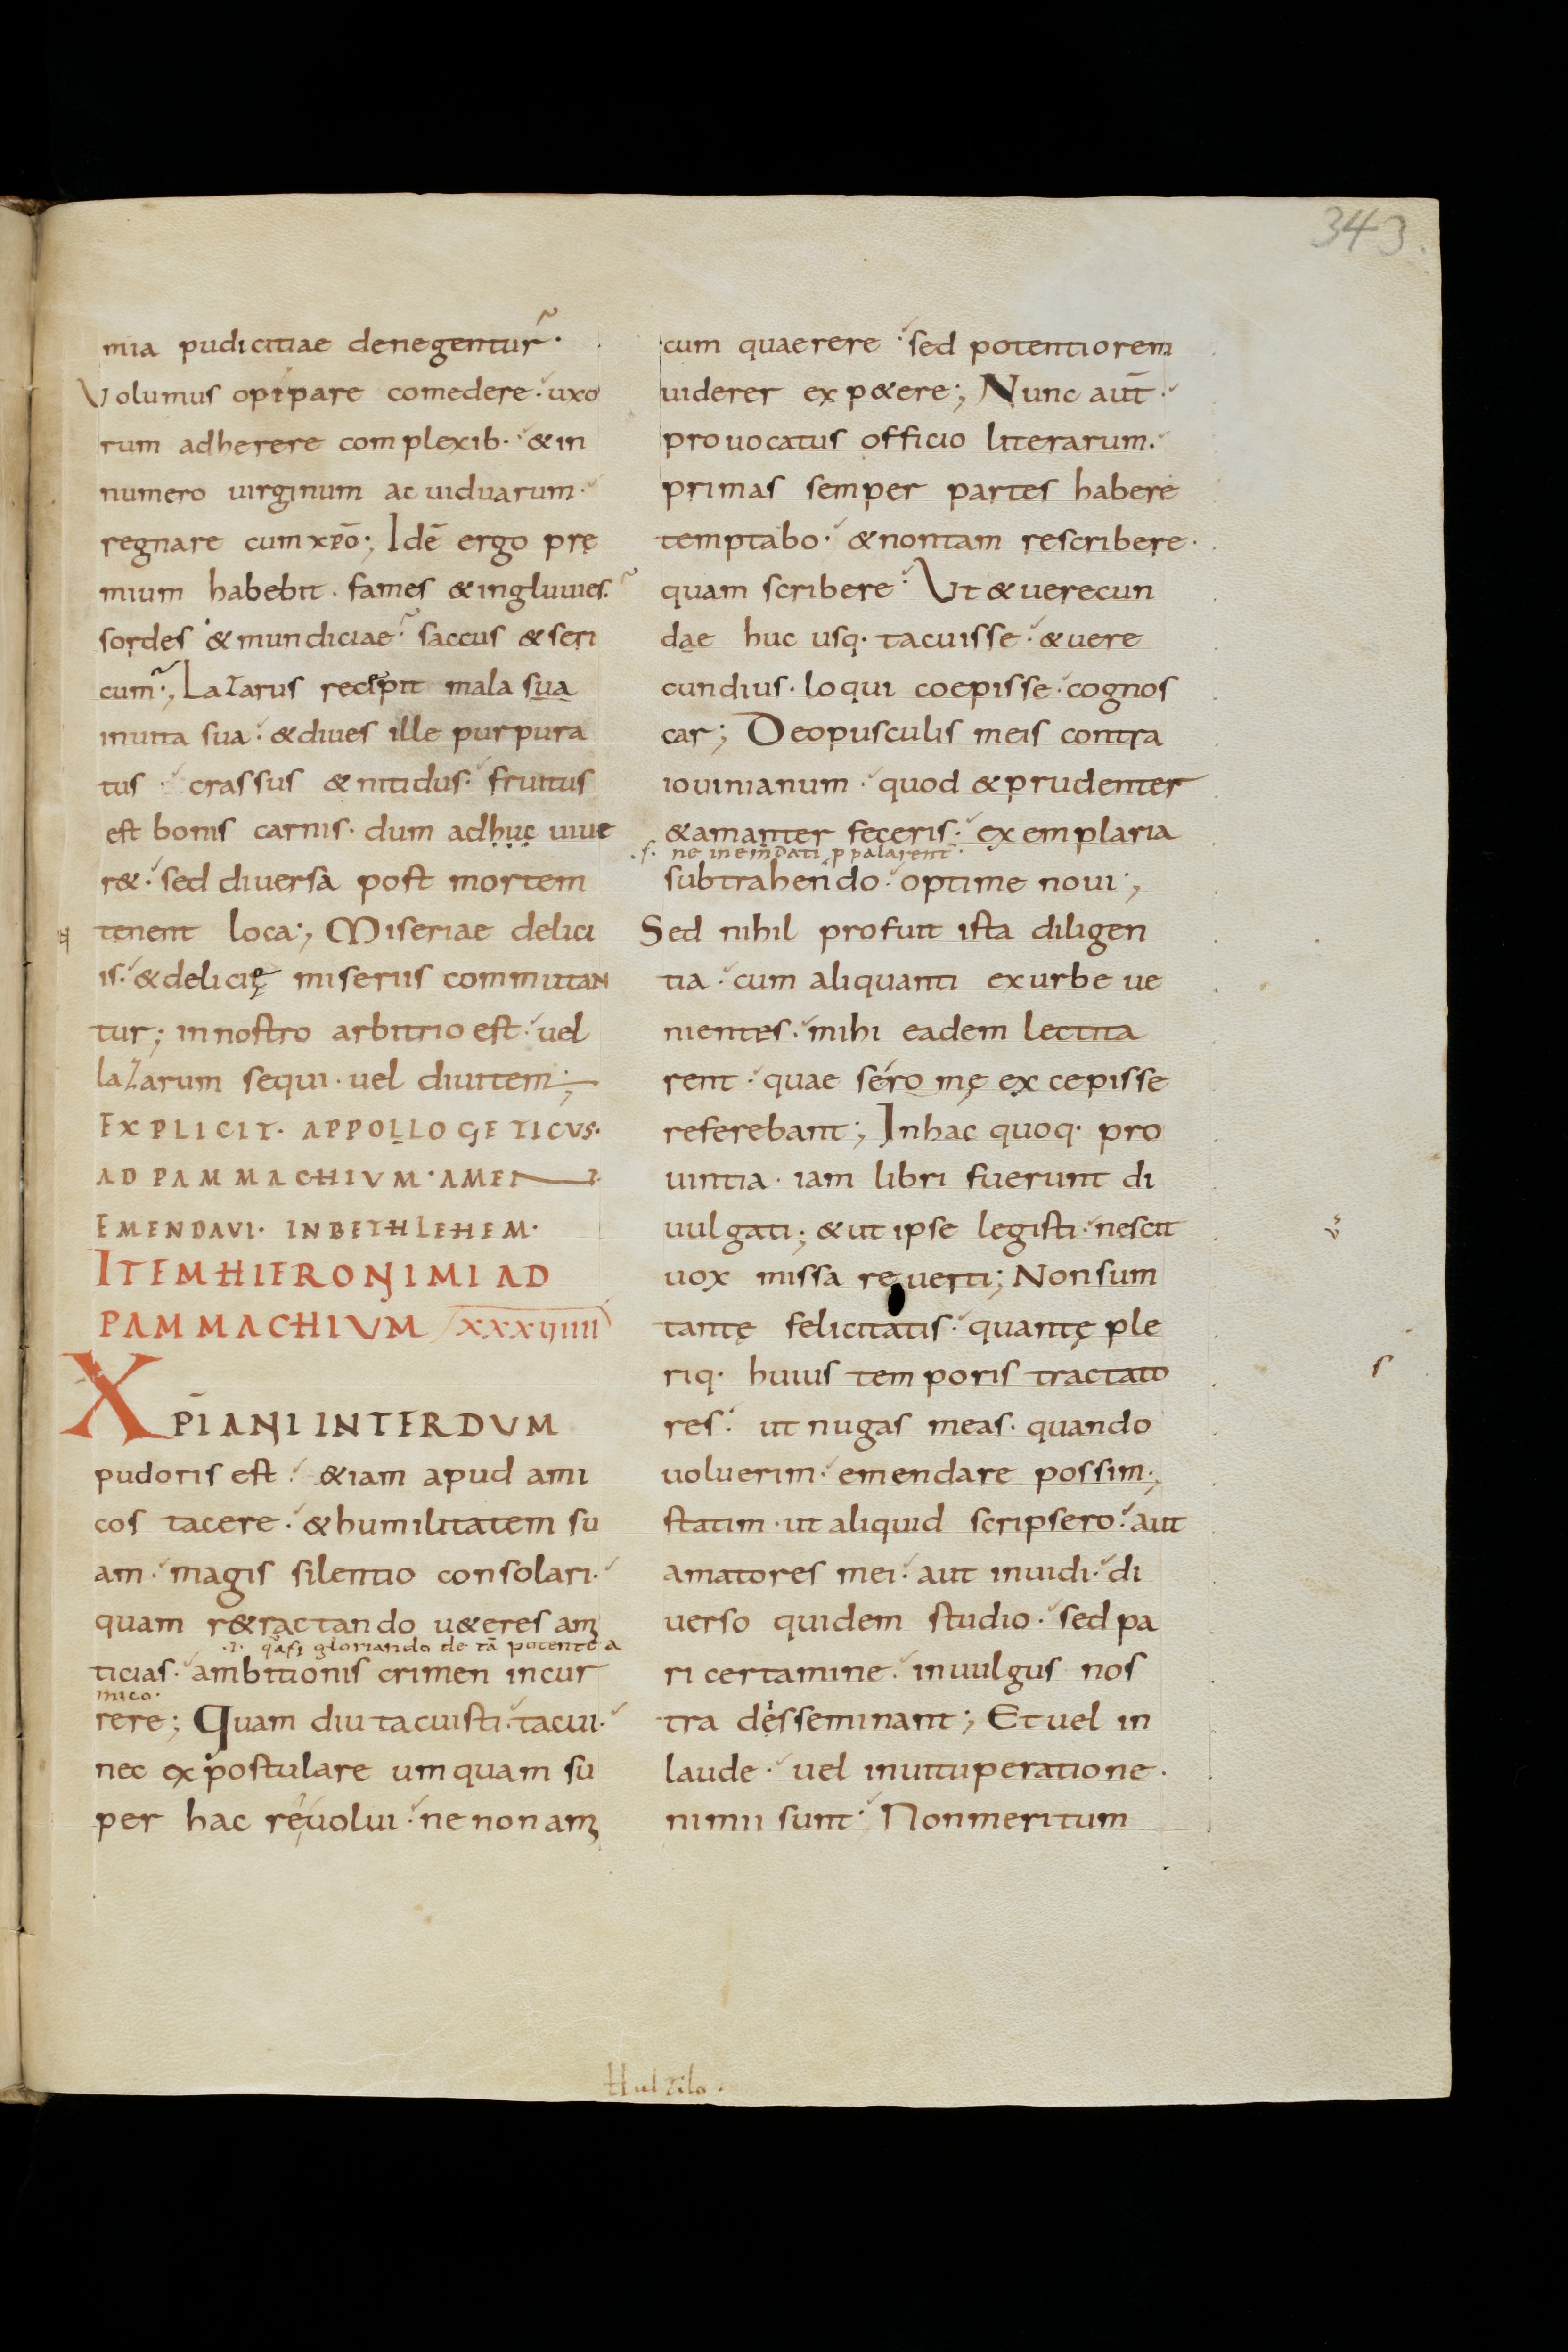 343
mia pudicitiae denegentur.
Volumus opipare comedere. uxo
rum adherere complexib. & in
numero uirginum ac uiduarum.
regnare cum xp̄o; Idē ergo prę
mium habebit. fames & ingluuies.
sordes & mundiciae. saccus & seri
cum; Lazarus recepit mala sua
in uita sua. & diues ille purpura
tus. crassus & nitidus. fruitus
est bonis carnis. dum adhuc uiue
r&. sed diversa post mortem
tenent loca; Miseriae delici
is. & delicię miseriis commutan
tur; in nostro arbitrio est. uel
lazarum sequi. uel diuitem;
EXPLICIT. APPOLLOGETICVS.
AD PAMMACHIVM. AMEN
EMENDAVI. IN BETHLEHEM.
ITEM HIERONIMI AD
PAMMACHIVM XXXIIIII
XPĪANI INTERDUM
pudoris est. &iam apud ami
cos tacere. & humilitatem su
am. magis silentio consolari.
quam r&ractando u&eres am
.i. quasi gloriando de tā potente a
ticias. ambitionis crimen incur
mico.
rere; Quam diu tacuisti. tacui.
nec expostulare umquam su
per hac re uolui. ne non am
cum quaerere. sed potentiorem
uiderer exp&ere; Nunc aut̄.
prouocatus officio literarum.
primas semper partes habere
temptabo. & non tam rescribere.
quam scribere. Ut & uerecun
dae huc usq. tacuisse. & uere
cundius. loqui coepisse. cognos
car; De opusculis meis contra
iouinianum. quod & prudenter
& amanter feceris. exemplaria
.s. ne inem̄dati ppalarent̄.
subtrahendo. optime noui;
Sed nihil profuit ista diligen
tia. cum aliquanti ex urbe ue
nientes. mihi eadem lectita
rent. quae sero mę excepisse
referebant; In hac quoq. pro
uintia. iam libri fuerunt di
uulgati; & ut ipse legisti. nescit
uox missa reuerti; Non sum
tantę felicitatis. quantę ple
riq. huius temporis tractato
res. ut nugas meas. quando
uoluerim. emendare possim;
statim. ut aliquid scripsero. aut
amatores mei. aut inuidi. di
uerso quidem studio. sed pa
ri certamine. in uulgus nos
tra desseminant; Et uel in
laude. uel in uituperatione.
nimii sunt. Non meritum